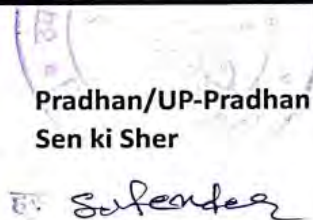 Pradhan/UP-Pradhan
Sen ki Sher
ह. Surender